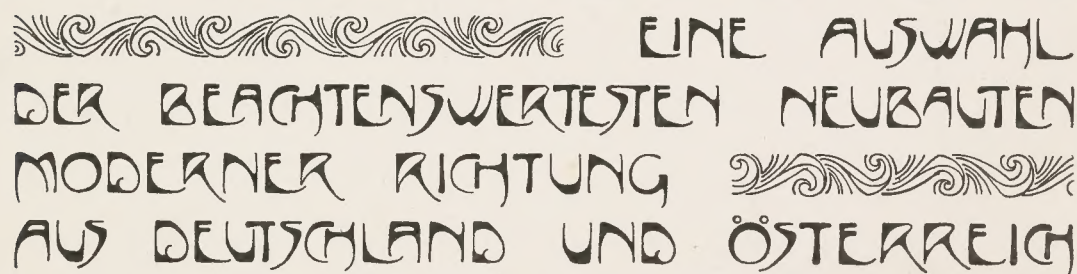 EINE AUSWAHL
DER BEACHTENSWERTESTEN NEUBAUTEN
MODERNER RICHTUNG
AUS DEUTSCHLAND UND ÖSTERREICH